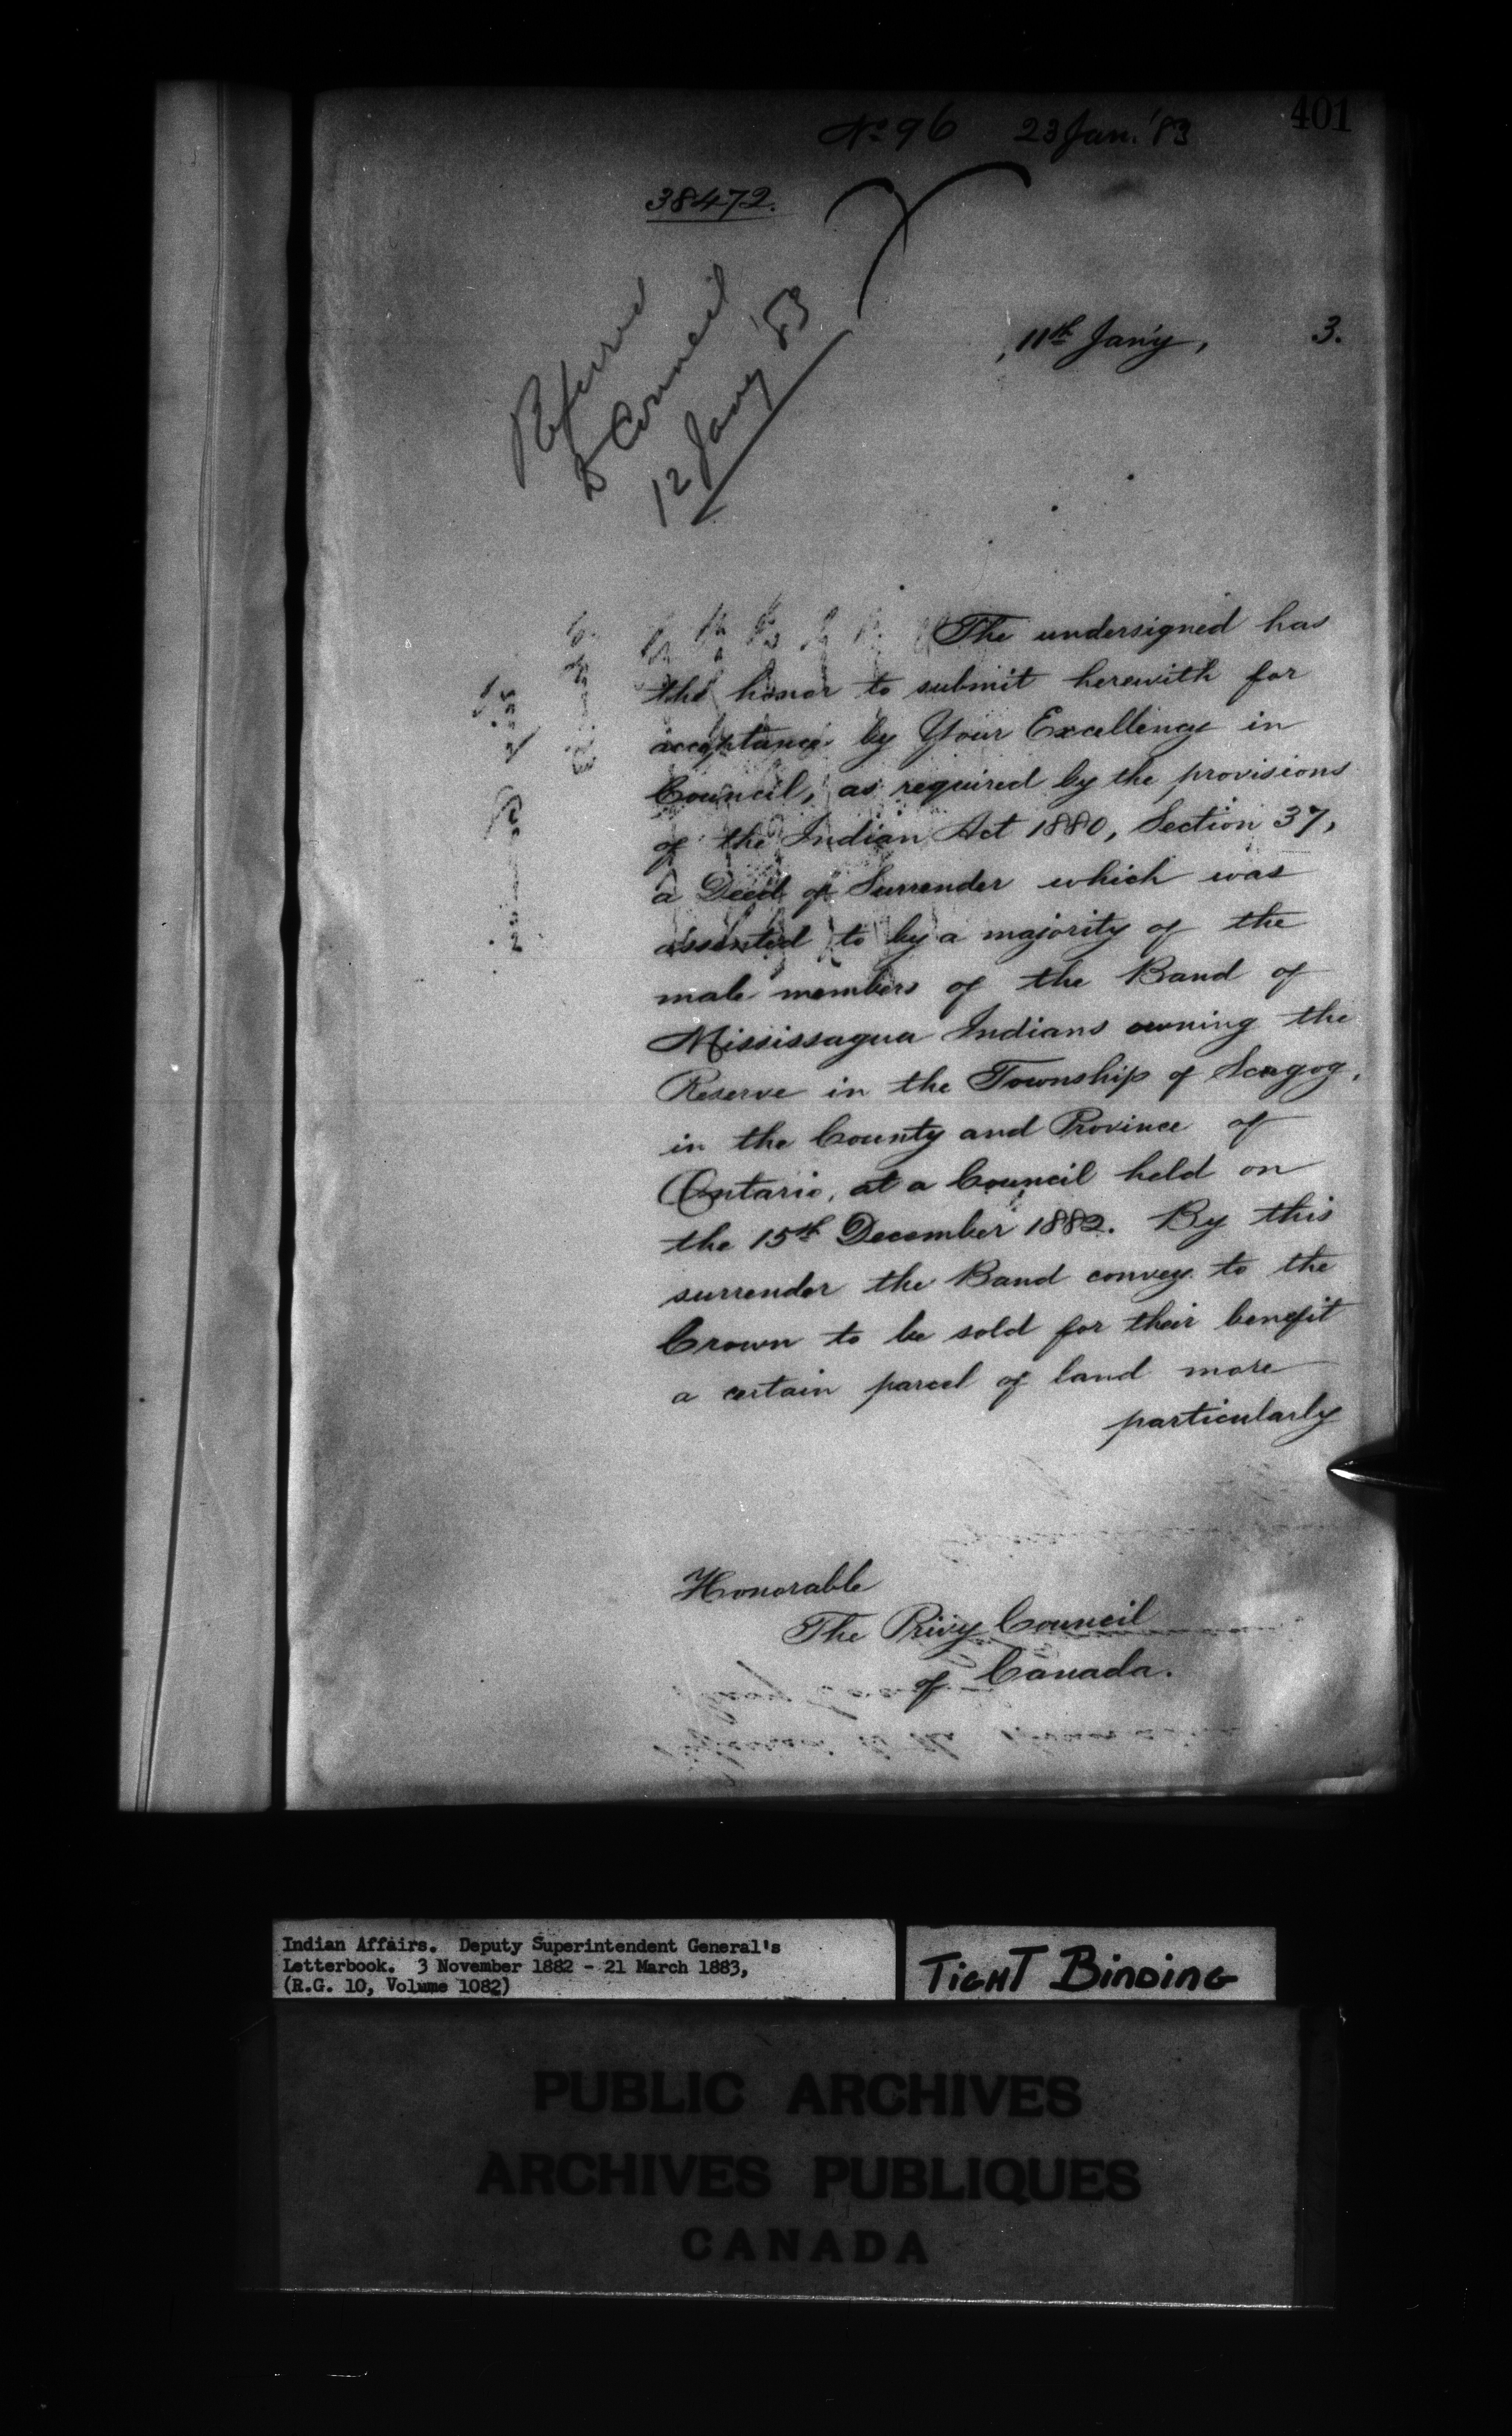 401
No 96 23 Jan. '83
38472.
Referred
to Council
12 Jany '83
, 11th Jan'y, 3.
The undersigned has
the honor to submit herewith for
acceptance by Your Excellency in
Council, as required by the provisions
of the Indian Act 1880, Section 37,
a Deed of Surrender which was
assented to by a majority of the
male members of the Band of
Mississagua Indians owning the
Reserve in the Township of Scugog,
in the County and Province of
Ontario, at a Council held on
the 15th December 1882. By this
surrender the Band convey to the
Crown to be sold for their benefit
a certain parcel of land more
particularly
Honorable
The Privy Council
of Canada.
Indian Affairs. Deputy Superintendent General's
Letterbook. 3 November 1882 - 21 March 1883,
(R.G. 10, Volume 1082)
TIGHT BINDING
PUBLIC ARCHIVES
ARCHIVES PUBLIQUES
CANADA